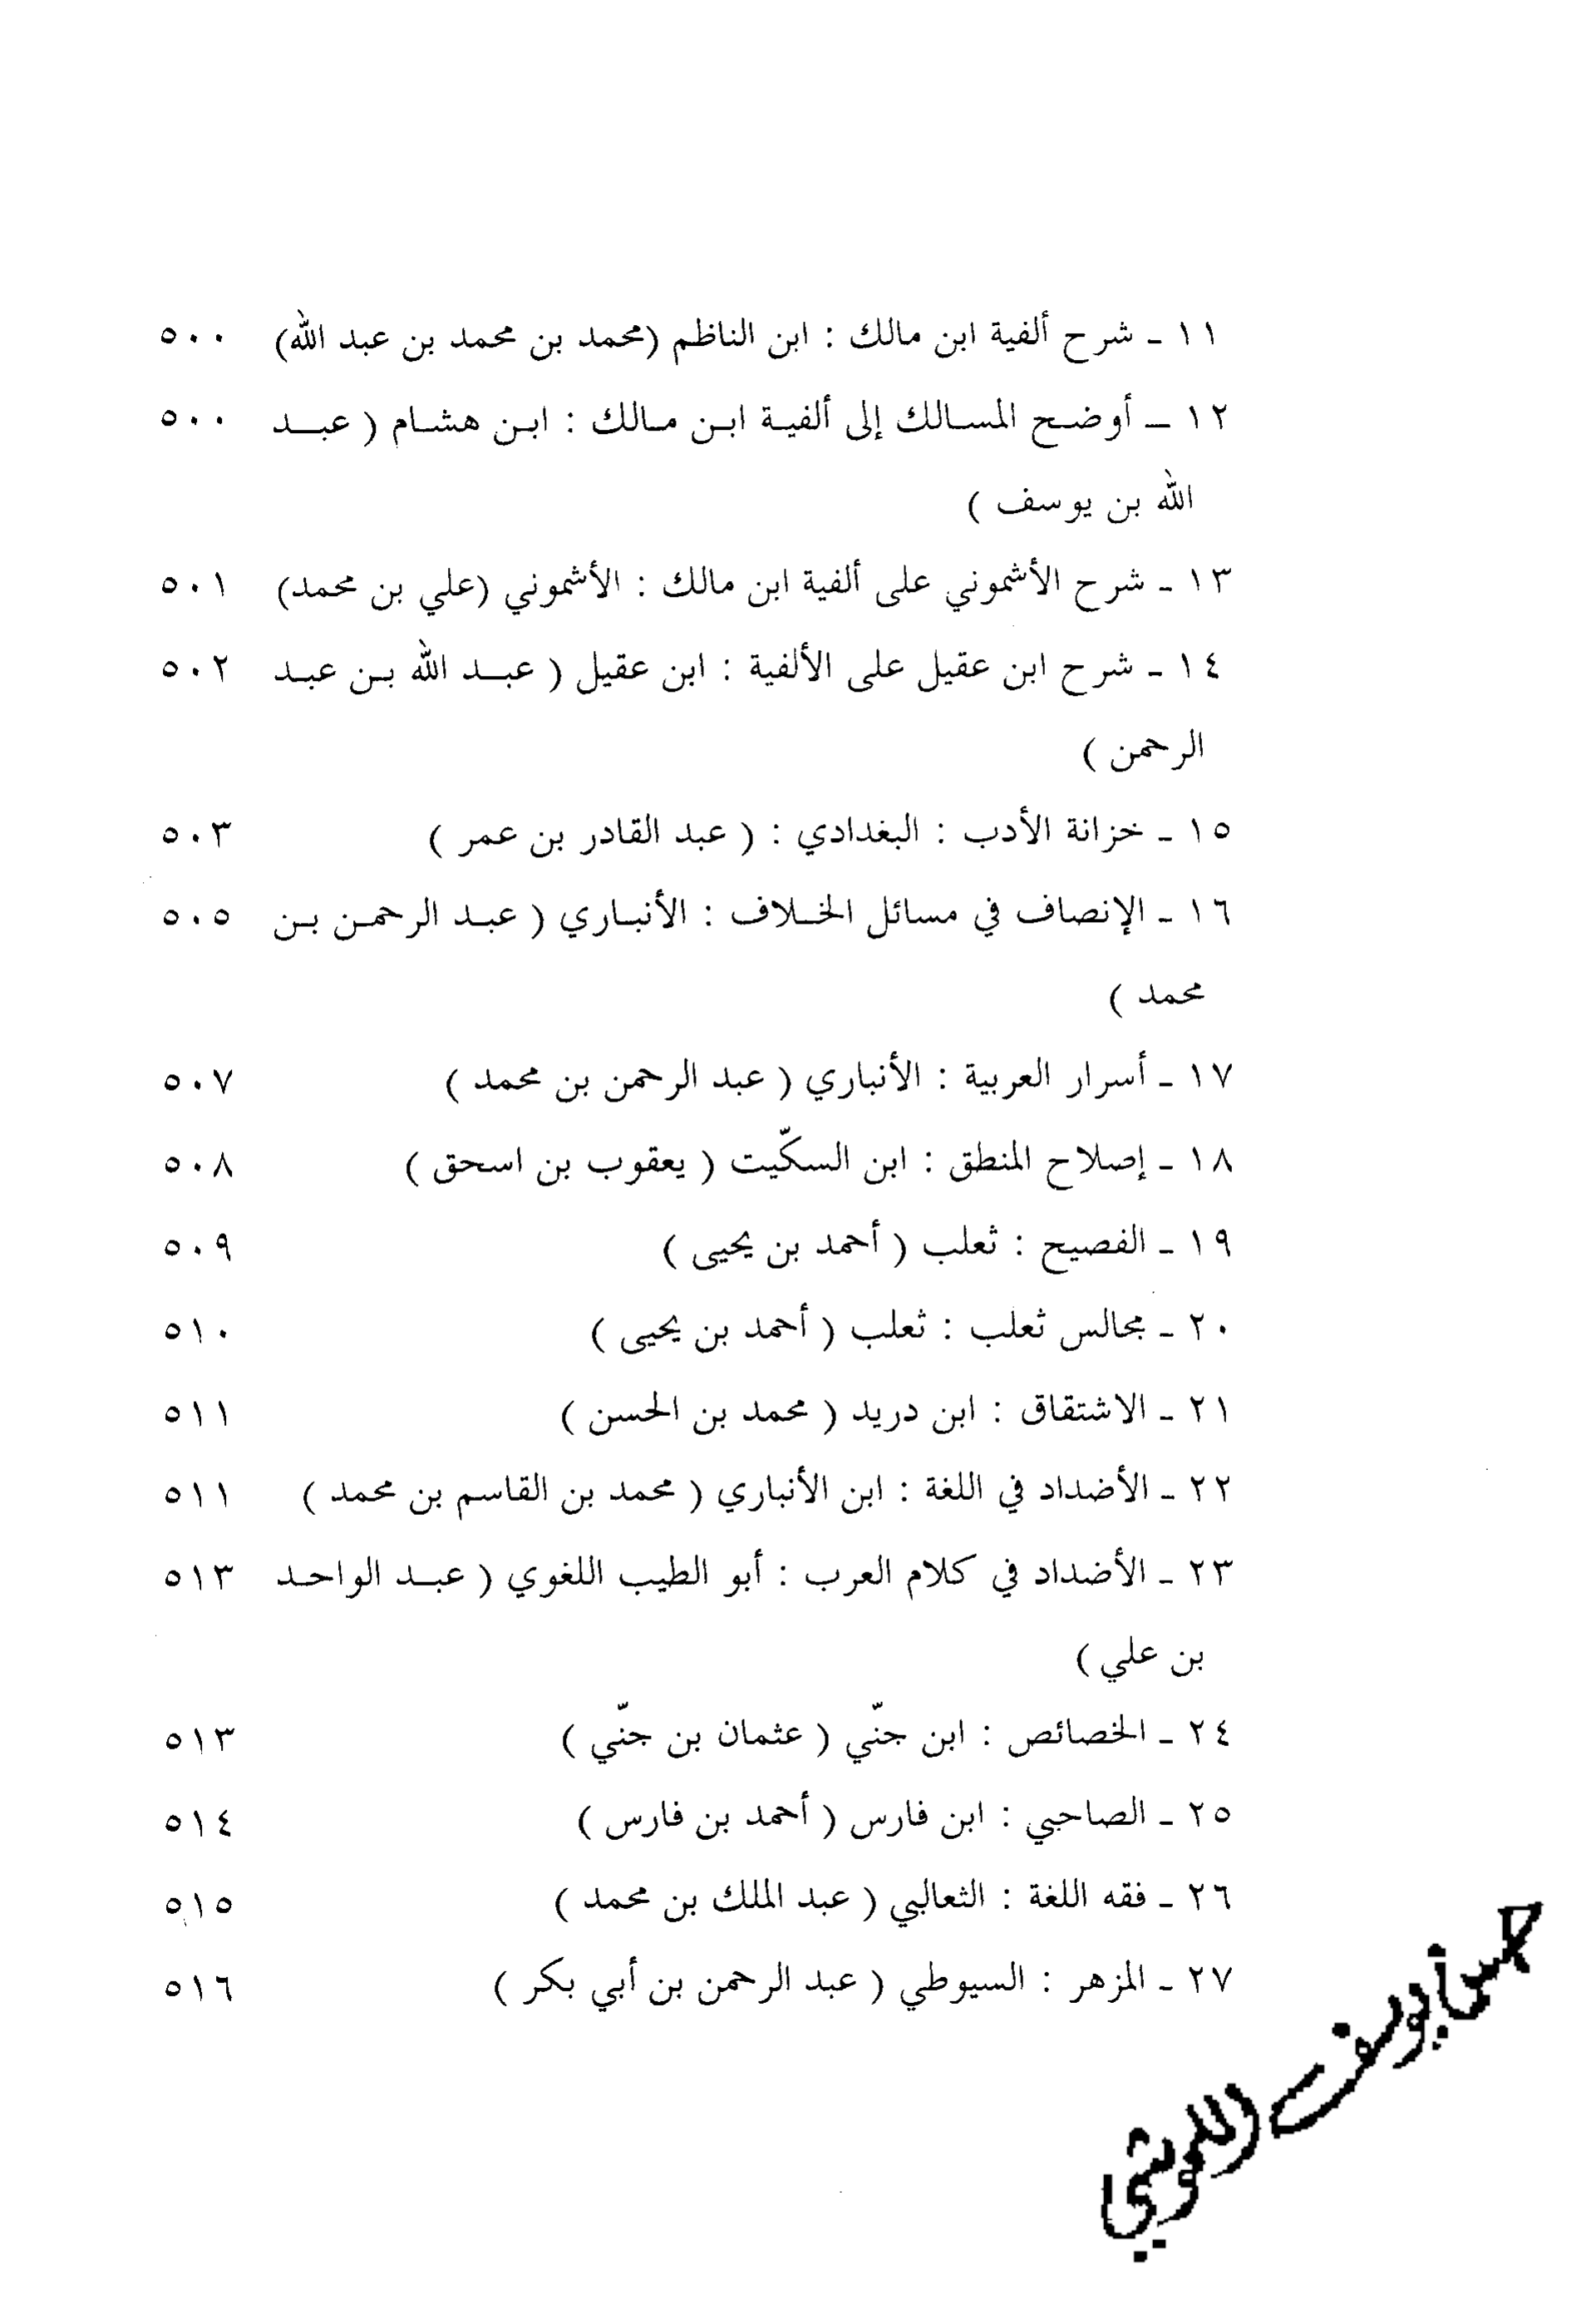 ١١ ـ شرح ألفية ابن مالك : ابن الناظم (محمد بن محمد بن عبد الله) ٥٠٠
١٢ ـ أوضح المسالك إلى ألفية ابن مالك : ابن هشام ( عبد ٥٠٠
الله بن يوسف )
١٣ ـ شرح الأشموني على ألفية ابن مالك : الأشموني (علي بن محمد) ٥٠١
١٤ ـ شرح ابن عقيل على الألفية : ابن عقيل ( عبد الله بن عبد ٥٠٢
الرحمن )
١٥ ـ خزانة الأدب : البغدادي : ( عبد القادر بن عمر ) ٥٠٣
١٦ ـ الإنصاف في مسائل الخلاف : الأنباري ( عبد الرحمن بن ٥٠٥
محمد )
١٧ ـ أسرار العربية : الأنباري ( عبد الرحمن بن محمد ) ٥٠٧
١٨ ـ إصلاح المنطق : ابن السكّيت ( يعقوب بن اسحق ) ٥٠٨
١٩ ـ الفصيح : ثعلب ( أحمد بن يحيى ) ٥٠٩
٢٠ ـ مجالس ثعلب : ثعلب ( أحمد بن يحيى ) ٥١٠
٢١ ـ الاشتقاق : ابن دريد ( محمد بن الحسن ) ٥١١
٢٢ ـ الأضداد في اللغة : ابن الأنباري ( محمد بن القاسم بن محمد ) ٥١١
٢٣ ـ الأضداد في كلام العرب : أبو الطيب اللغوي ( عبد الواحد ٥١٣
بن علي )
٢٤ ـ الخصائص : ابن جنّي ( عثمان بن جنّي ) ٥١٣
٢٥ ـ الصاحبي : ابن فارس ( أحمد بن فارس ) ٥١٤
٢٦ ـ فقه اللغة : الثعالبي ( عبد الملك بن محمد ) ٥١٥
٢٧ ـ المزهر : السيوطي ( عبد الرحمن بن أبي بكر ) ٥١٦